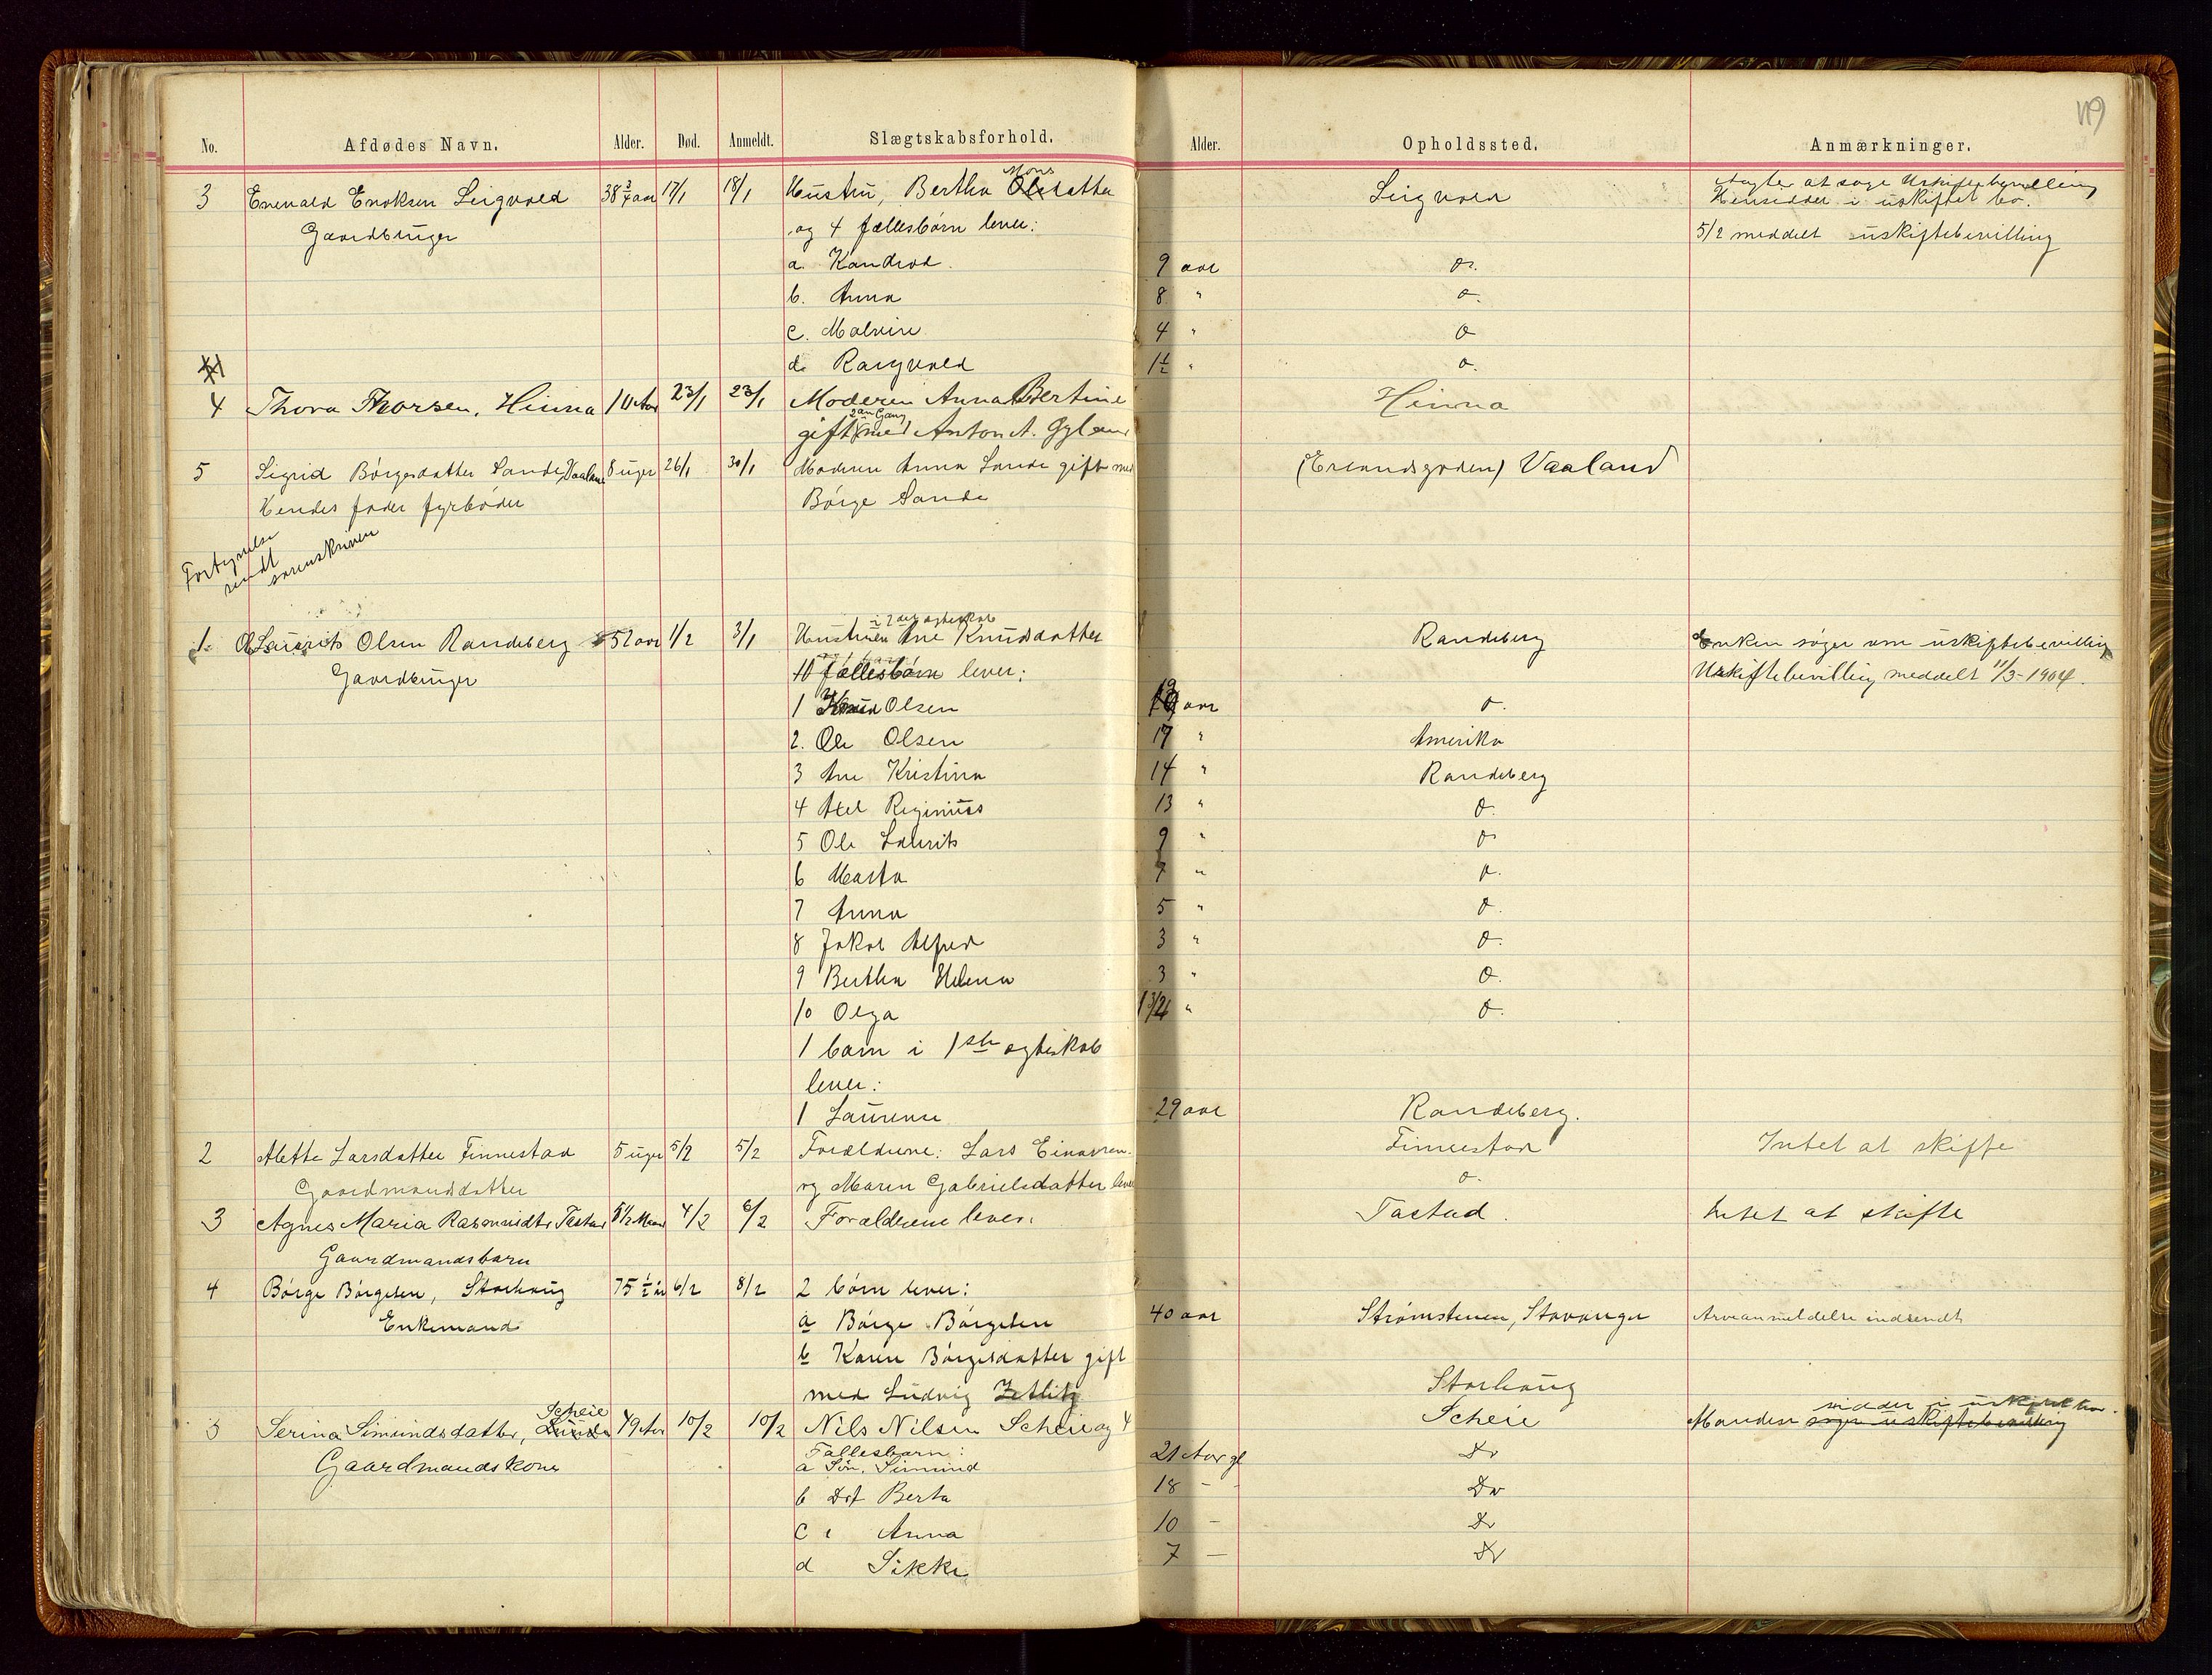 119
No. Afdødes Navn. Alder. Død. Anmeldt. Slægtskabsforhold. Alder. Opholdssted. Anmærkninger.
3 Enevald Enoksen Leigvold 38 3/4 aar 17/1 18/1 Hustru, Bertha Monsdatter Leigvold Agter at søge Uskiftebevilling
Hensidder i uskiftet bo.
Gaardbruger og 4 fællesbørn lever: 5/2 meddelt uskiftebevilling
a. Kandrod 9 aar do.
b. Anna 8 " do.
c. Malvine 4 " do
d. Rasgvald 1½ " do.
4 Thora Thorsen, Hinna 10 Aar 23/1 23/1 Moderen Anna Bertine Hinna
2an Gang
gift med Anton A. Gyland
5 Sigrid Børgesdatter Sande, Vaaland 8 uger 26/1 30/1 Moderen Anna Sande gift med (Erlandsgaden) Vaaland
Hendes fader fyrbøder Børge Sande
Fortegnelse
sendt
sorenskriveren
i 2det ægteskab
1. Laurits Olsen Randeberg 52 aar 1/2 3/1 Hustruen Ane Knudsdatter Randeberg Enken søger om uskiftebevilling
Gaardbruger 10 fællesbørn lever: Uskiftebevilling meddelt 11/3-1904.
1 Olsen 19 aar do.
2. Ole Olsen 17 " Amerika
3 Ane Kristina 14 " Randeberg
4 Axel Reginius 13 " do.
5 Ole Laurits 9 " do
6 Marta 7 " do.
7 Anna 5 " do.
8 Jakob Alfred 3 " do.
9 Bertha Helena 3 " do.
10 Olga 1 3/4 " do.
1 barn i 1ste ægteskab
lever:
1 Laurense 29 aar Randeberg.
2 Alette Larsdatter Finnestad 5 uger 5/2 5/2 Forældrene: Lars Einarsen Finnestad Intet at skifte
Gaardmandsdatter og Maren Gabrielsdatter lever do.
3 Agnes Maria Rasmusdtr Tastad 5½ Maan 4/2 6/2 Forælderene lever. Tastad. Intet at skifte
Gaardmandsbarn
4 Børge Børgesen, Storhaug 75 ½ år 6/2 8/2 2 børn lever:
Enkemand a Børge Børgesen 40 aar Strømstenen, Stavanger Arveanmeldelse indsendt
b Karen Børgesdatter gift
med Ludvig Zetlitz Storhaug
Scheie sidder i uskiftet bo.
5 Serina Simundsdatter, Lunde 49 Aar 10/2 10/2 Nils Nilsen Scheie og 4 Scheie Manden søger uskiftebevilling
Gaardmandskone Fællesbarn:
a Søn. Simund 21 Aar gl Do
b Dat Berta 18 - Do
c " Anna 10 - Do
d Sikke 7 - Do